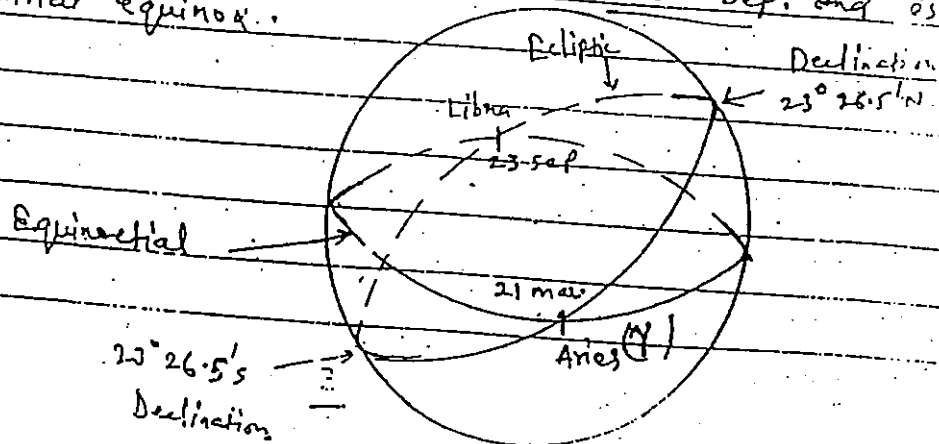 equinox.
Sep. and
Ecliptic
Declination
23° 26.5' N
Libra
23-sep
Equinoctial
21 mar.
Aries (♈)
23° 26.5' s
Declination